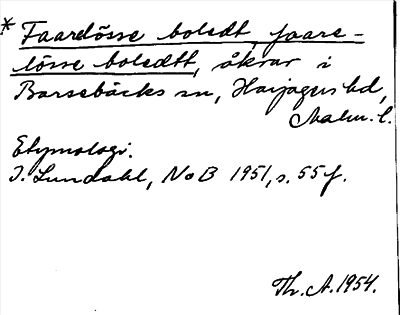 * Faarelösse boledt, faare-
lösse boledtt, åkrar i
Barsebäcks sn, Harjagers hd,
Malm. l.
Etymologi.
I. Lundahl, NoB 1951, s. 55 f.
Th. A. 1954.